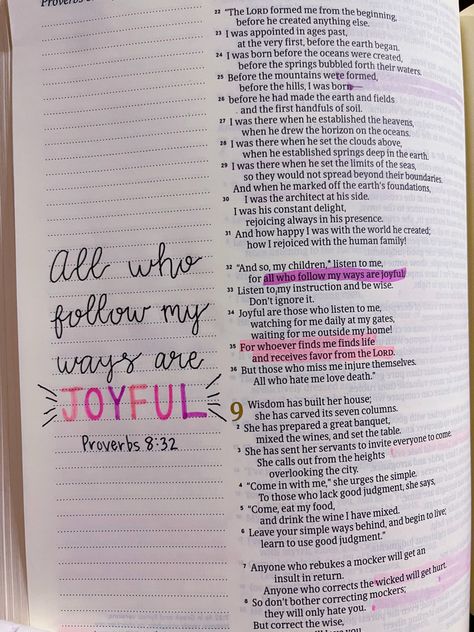 Proverbs 8:
22 "The LORD formed me from the beginning,
before he created anything else.
23 I was appointed in ages past,
at the very first, before the earth began.
24 I was born before the oceans were created,
before the springs bubbled forth their waters.
25 Before the mountains were formed,
before the hills, I was born—
26 before he had made the earth and fields
and the first handfuls of soil.
27 I was there when he established the heavens,
when he drew the horizon on the oceans.
28 I was there when he set the clouds above,
when he established springs deep in the earth.
29 I was there when he set the limits of the seas,
so they would not spread beyond their boundaries.
And when he marked off the earth's foundations,
30 I was the architect at his side.
I was his constant delight,
rejoicing always in his presence.
31 And how happy I was with the world he created;
how I rejoiced with the human family!
32 "And so, my children,* listen to me,
for all who follow my ways are joyful.
33 Listen to my instruction and be wise.
Don't ignore it.
34 Joyful are those who listen to me,
watching for me daily at my gates,
waiting for me outside my home!
35 For whoever finds me finds life
and receives favor from the LORD.
36 But those who miss me injure themselves.
All who hate me love death."
9 Wisdom has built her house;
she has carved its seven columns.
2 She has prepared a great banquet,
mixed the wines, and set the table.
3 She has sent her servants to invite everyone to come.
She calls out from the heights
overlooking the city.
4 "Come in with me," she urges the simple.
To those who lack good judgment, she says,
5 "Come, eat my food,
and drink the wine I have mixed.
6 Leave your simple ways behind, and begin to live;
learn to use good judgment."
7 Anyone who rebukes a mocker will get an
insult in return.
Anyone who corrects the wicked will get hurt.
8 So don't bother correcting mockers;
they will only hate you.
But correct the wise,
all who
follow my
ways are
JOYFUL
Proverbs 8:32